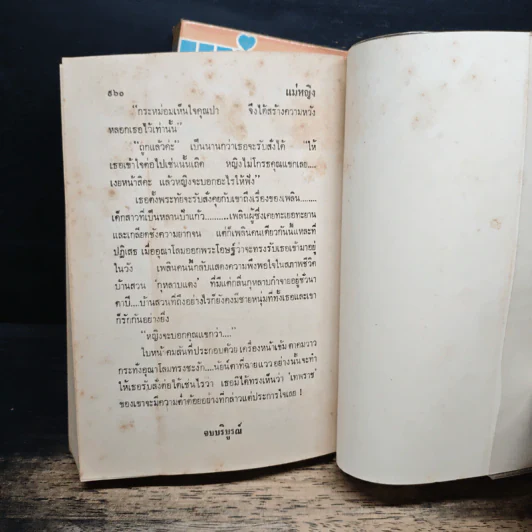 ๕๖๐ แม่หญิง
"กระหม่อมเห็นใจคุณปา จึงได้สร้างความหวัง
หลอกเธอไว้เท่านั้น"
"ถูกแล้วค่ะ" เป็นนานกว่าเธอจะรับสั่งได้ "ให้
เธอเข้าใจต่อไปเช่นนั้นเถิด หญิงไม่โกรธคุณแขกเลย....
เงยหน้าสิคะ แล้วหญิงจะบอกอะไรให้ฟัง"
เธอตั้งพระทัยจะรับสั่งคุยกับเขาถึงเรื่องของเพลิน......
เด็กสาวที่เป็นหลานป้าแก้ว.........เพลินผู้ซึ่งเคยทะเยอทะยาน
และเกลียดชังความยากจน แต่ก็เพลินคนเดียวกันนี้แหละที่
ปฏิเสธ เมื่ออุณาโลมออกพระโอษฐ์ว่าจะทรงรับเธอเข้ามาอยู่
ในวัง เพลินคนนี้กลับแสดงความพึงพอใจในสภาพชีวิต
บ้านสวน "กุหลาบแดง" ที่มีแต่กลิ่นกุหลาบกำจายอยู่ชั่วนา
ตาปี....บ้านสวนที่ถึงอย่างไรก็ยังคงมีชายหนุ่มที่ทั้งเธอและเขา
ก็รักกันอย่างยิ่ง
"หญิงจะบอกคุณแขกว่า...."
ใบหน้าคมสันที่ประกอบด้วย เครื่องหน้าเข้ม ตาคมวาว
กระทั่งอุณาโลมทรงชะงัก....นัยน์ตาที่ฉายแวว อย่างนั้นจะทำ
ให้เธอรับสั่งต่อได้เช่นไรว่า เธอมิได้ทรงเห็นว่า 'เทพราช'
ของเขาจะมีความต่ำต้อยอย่างที่กล่าวแต่ประการใดเลย !
จบบริบูรณ์